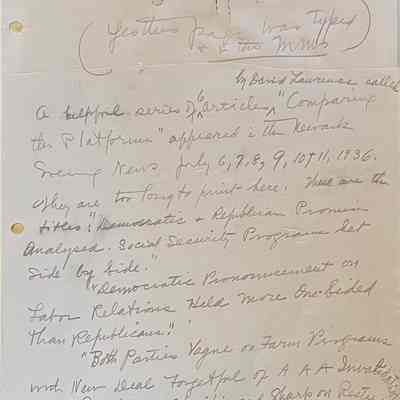 page was typed
by David Lawrence called
A helpful series of 6 articles, "Comparing
the Platforms" appeared in the Newark
Evening News July 6, 7, 8, 9, 10 & 11, 1936.
They are too long to print here. These are the
titles: "Democratic & Republican Promises
Analyzed. Social Security Programs Set
Side by Side."
"Democratic Pronouncement on
Labor Relations Held More One-Sided
Than Republicans."
"Both Parties Vague on Farm Programs
with New Deal Forgetful of AAA Invalidation
Sharp on